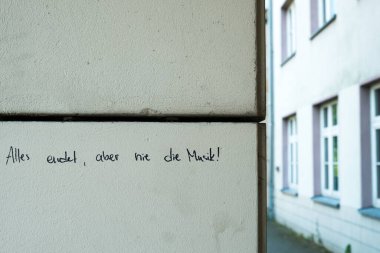 Alles endet, aber nie die Musik!